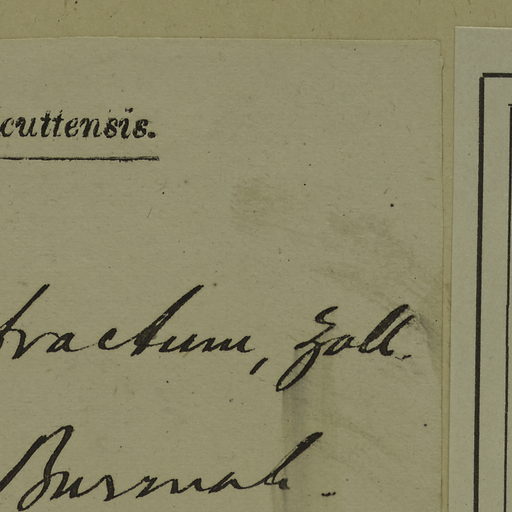 cuttensis.
tractum, Zoll.
Burmah.